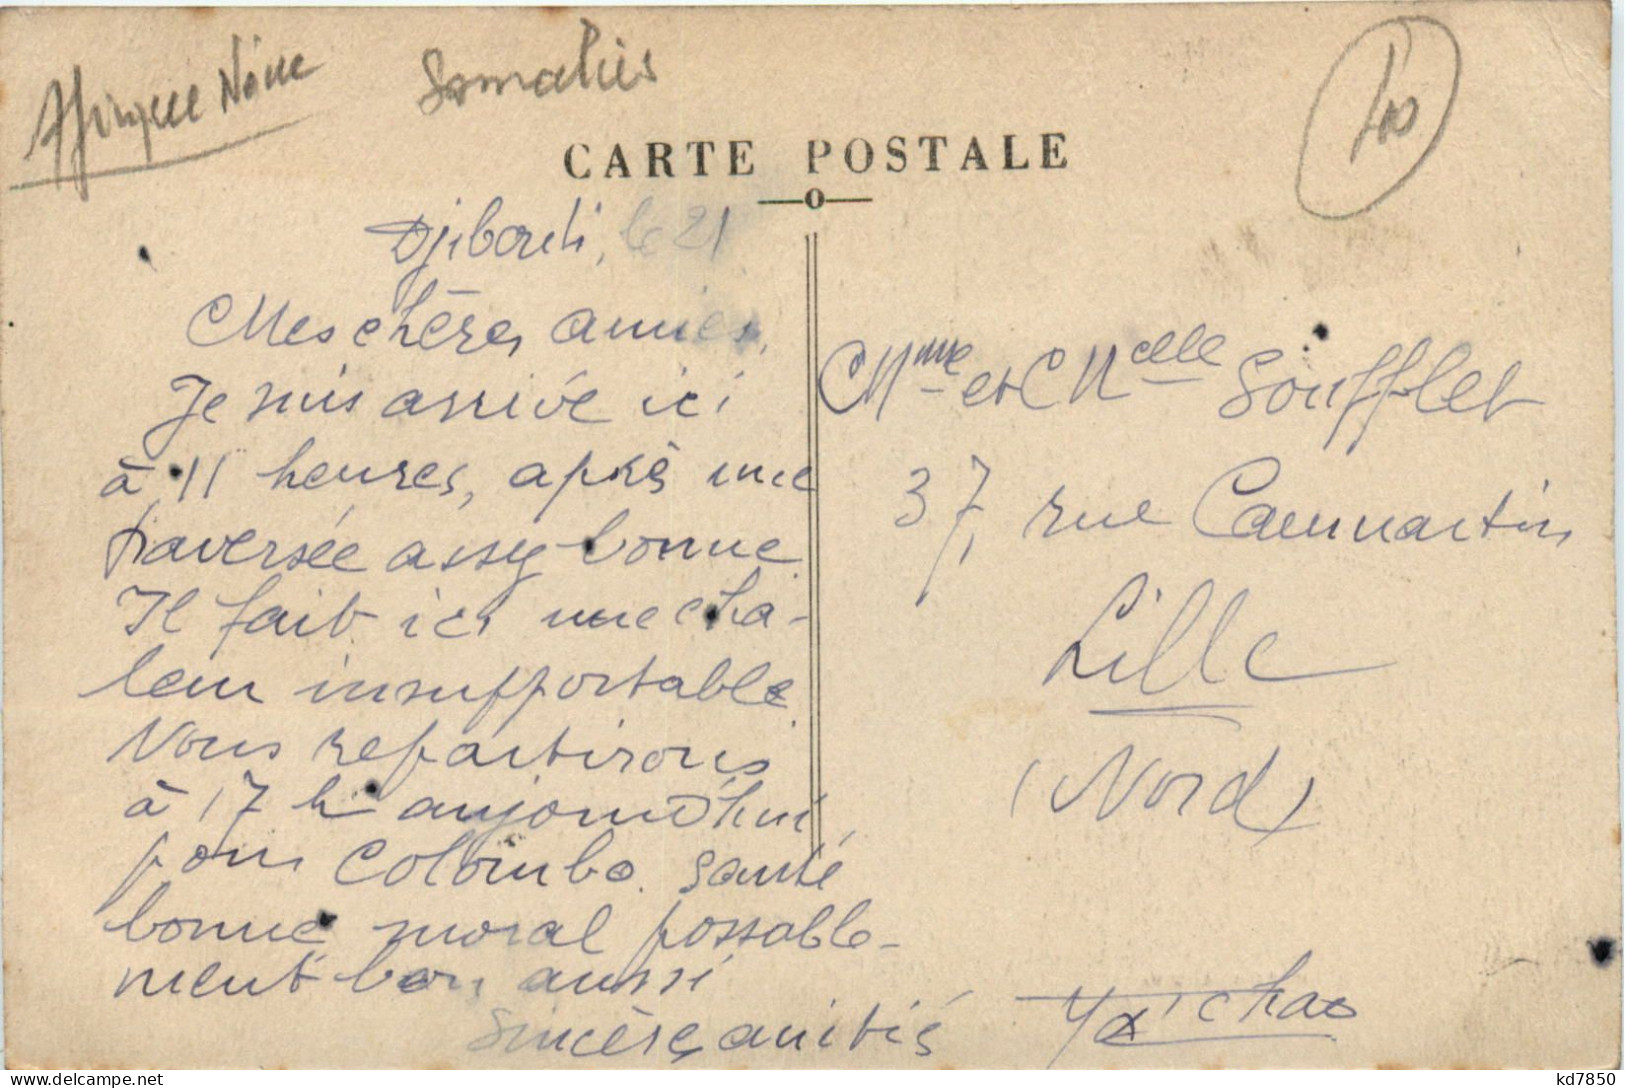 Afrique Noire
Somalis
100
CARTE POSTALE
Djibouti, le 21
Mes chères amies,
Je suis arrivé ici
à 11 heures, après une
traversée assez bonne.
Il fait ici une cha-
leur insupportable.
Nous repartirons
à 17 h aujourd'hui,
pour Colombo. Santé
bonne moral passable-
ment bon aussi
Sincères amitiés
Mme et Melle Soufflet
37, rue Caumartin
Lille
(Nord)
kd7850